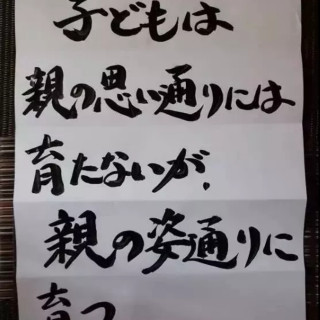 子どもは
親の思い通りには
育たないが、
親の姿通りに
育つ